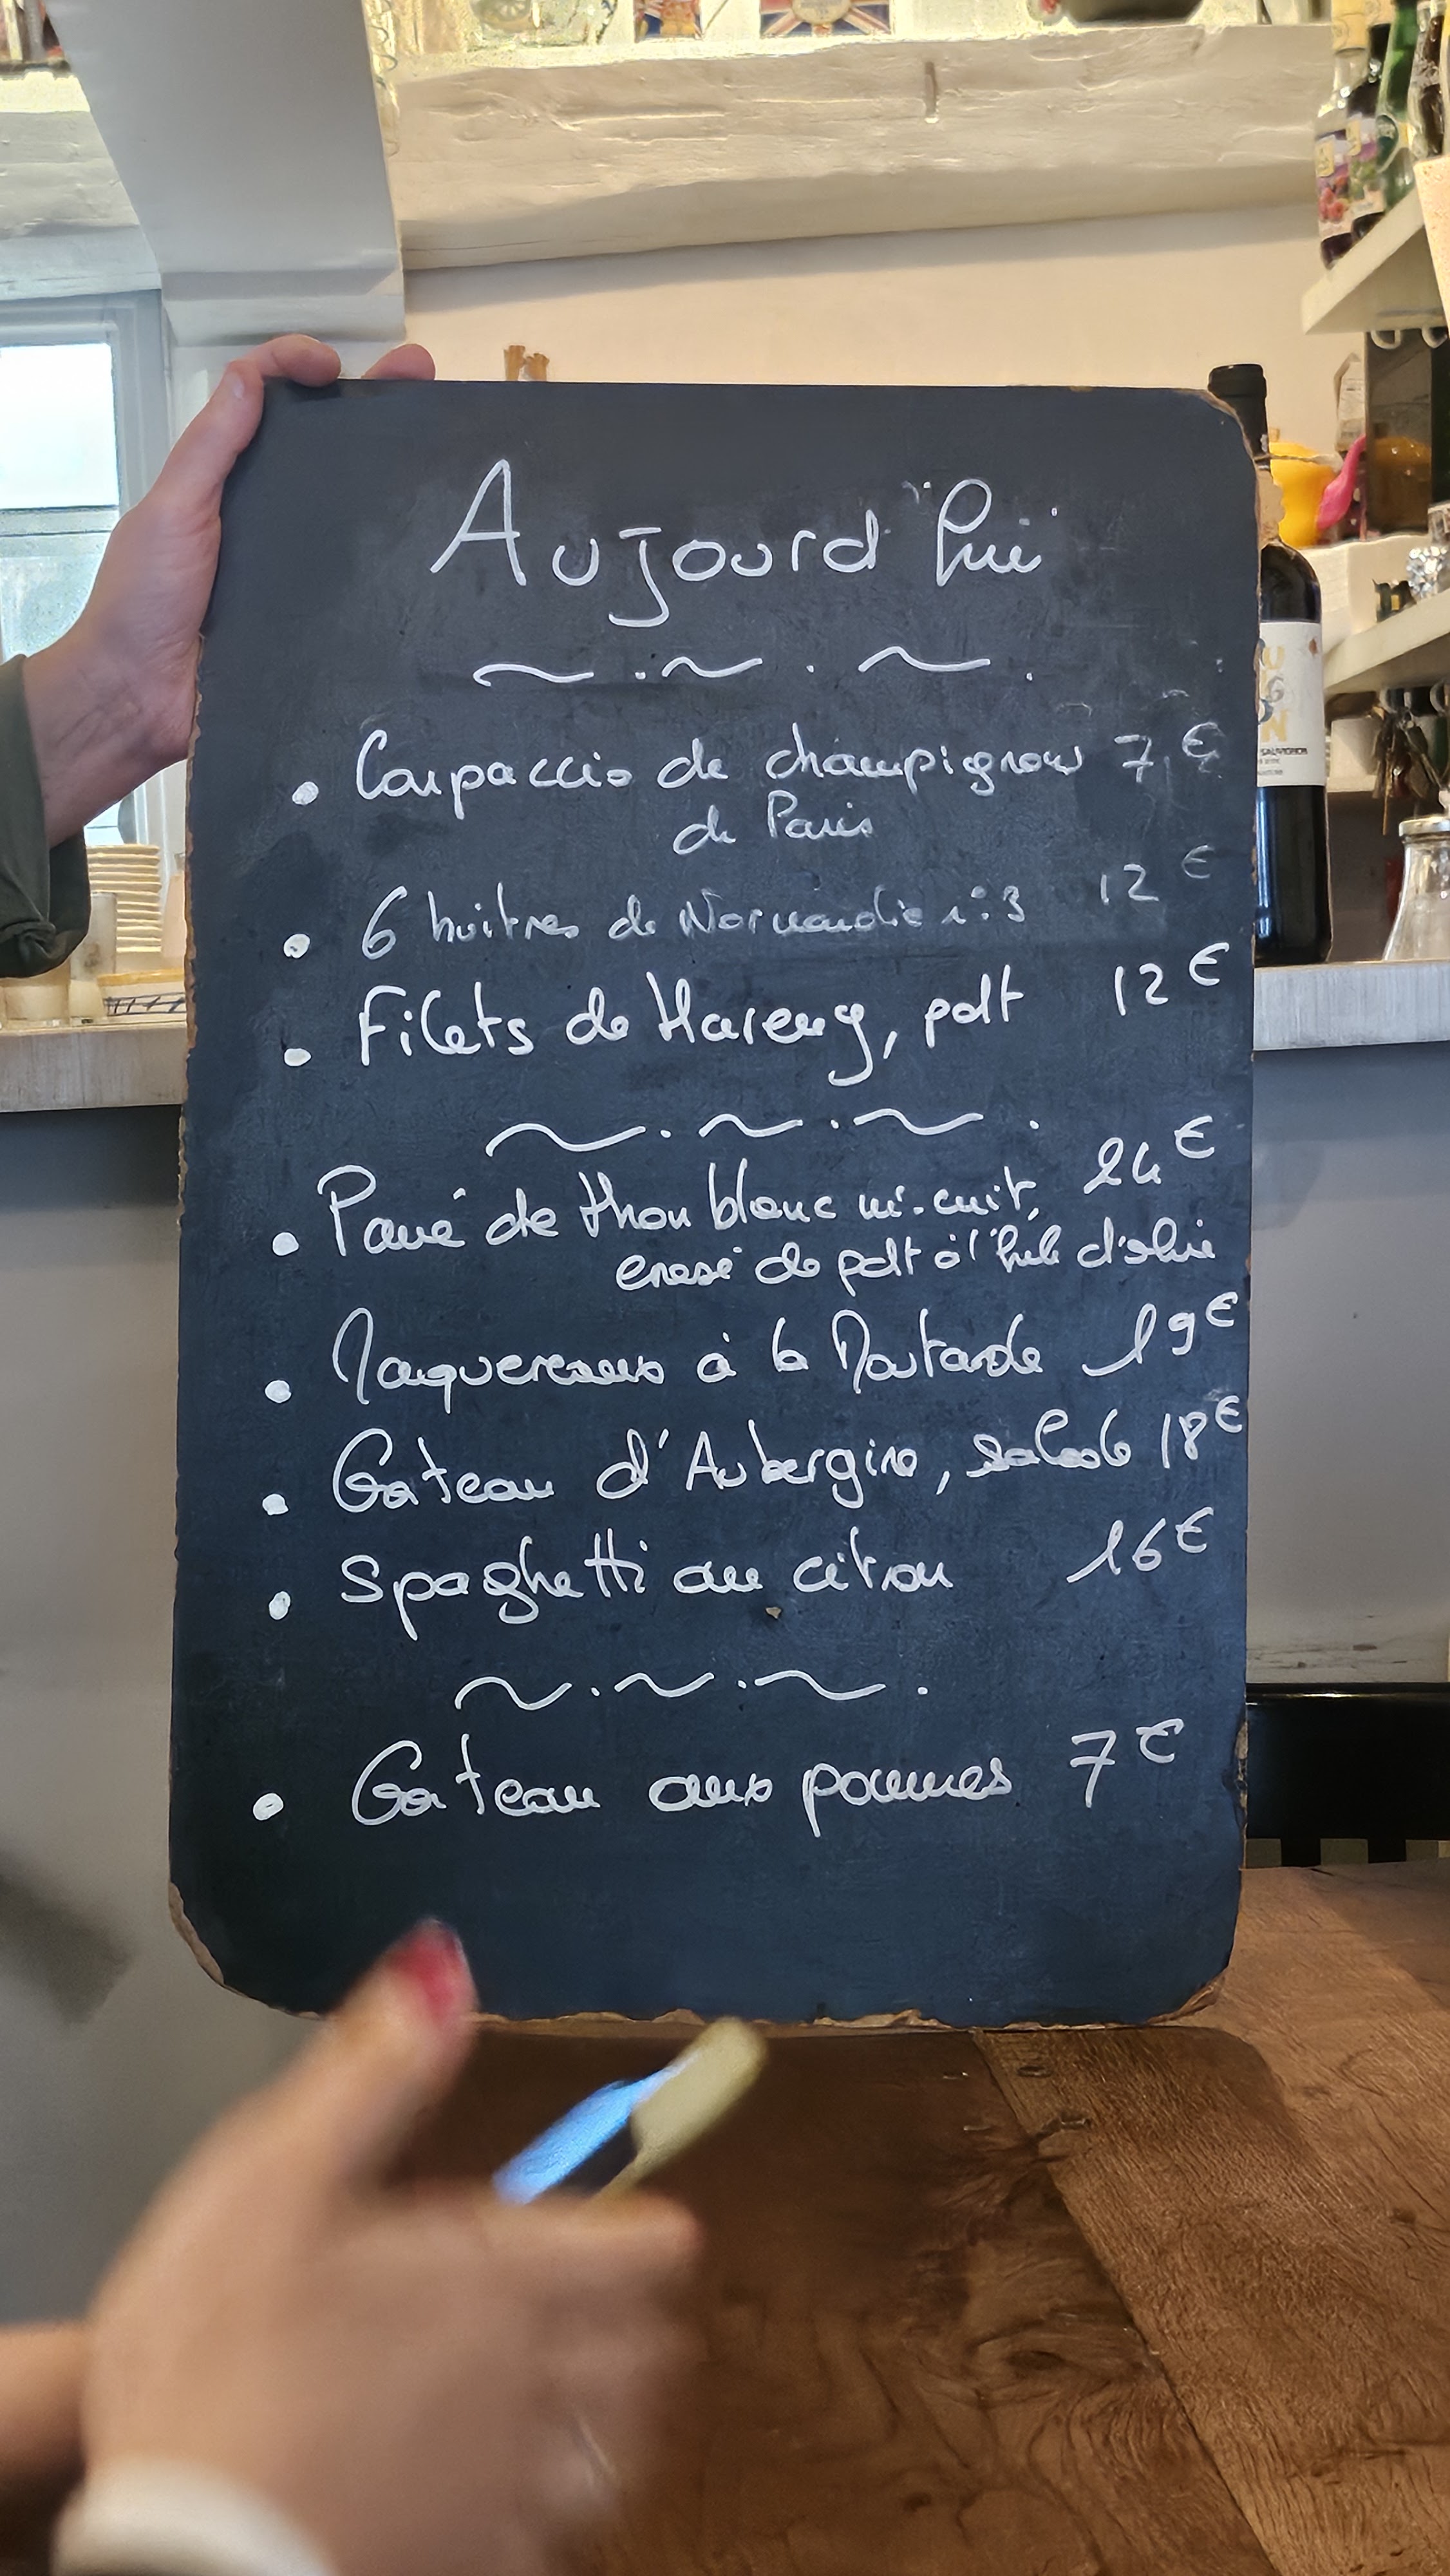 Aujourd'hui
• Carpaccio de champignons 7,€
de Paris
• 6 huitres de Normandie n°3 12€
• Filets de Hareng, pdt 12€
• Pavé de thon blanc mi-cuit, 24€
écrasé de pdt à l'huile d'olive
• Maquereaux à la Moutarde 19€
• Gateau d'Aubergine, salade 18€
• Spaghetti au citron 16€
• Gateau aux pommes 7€
SAUVIGNON